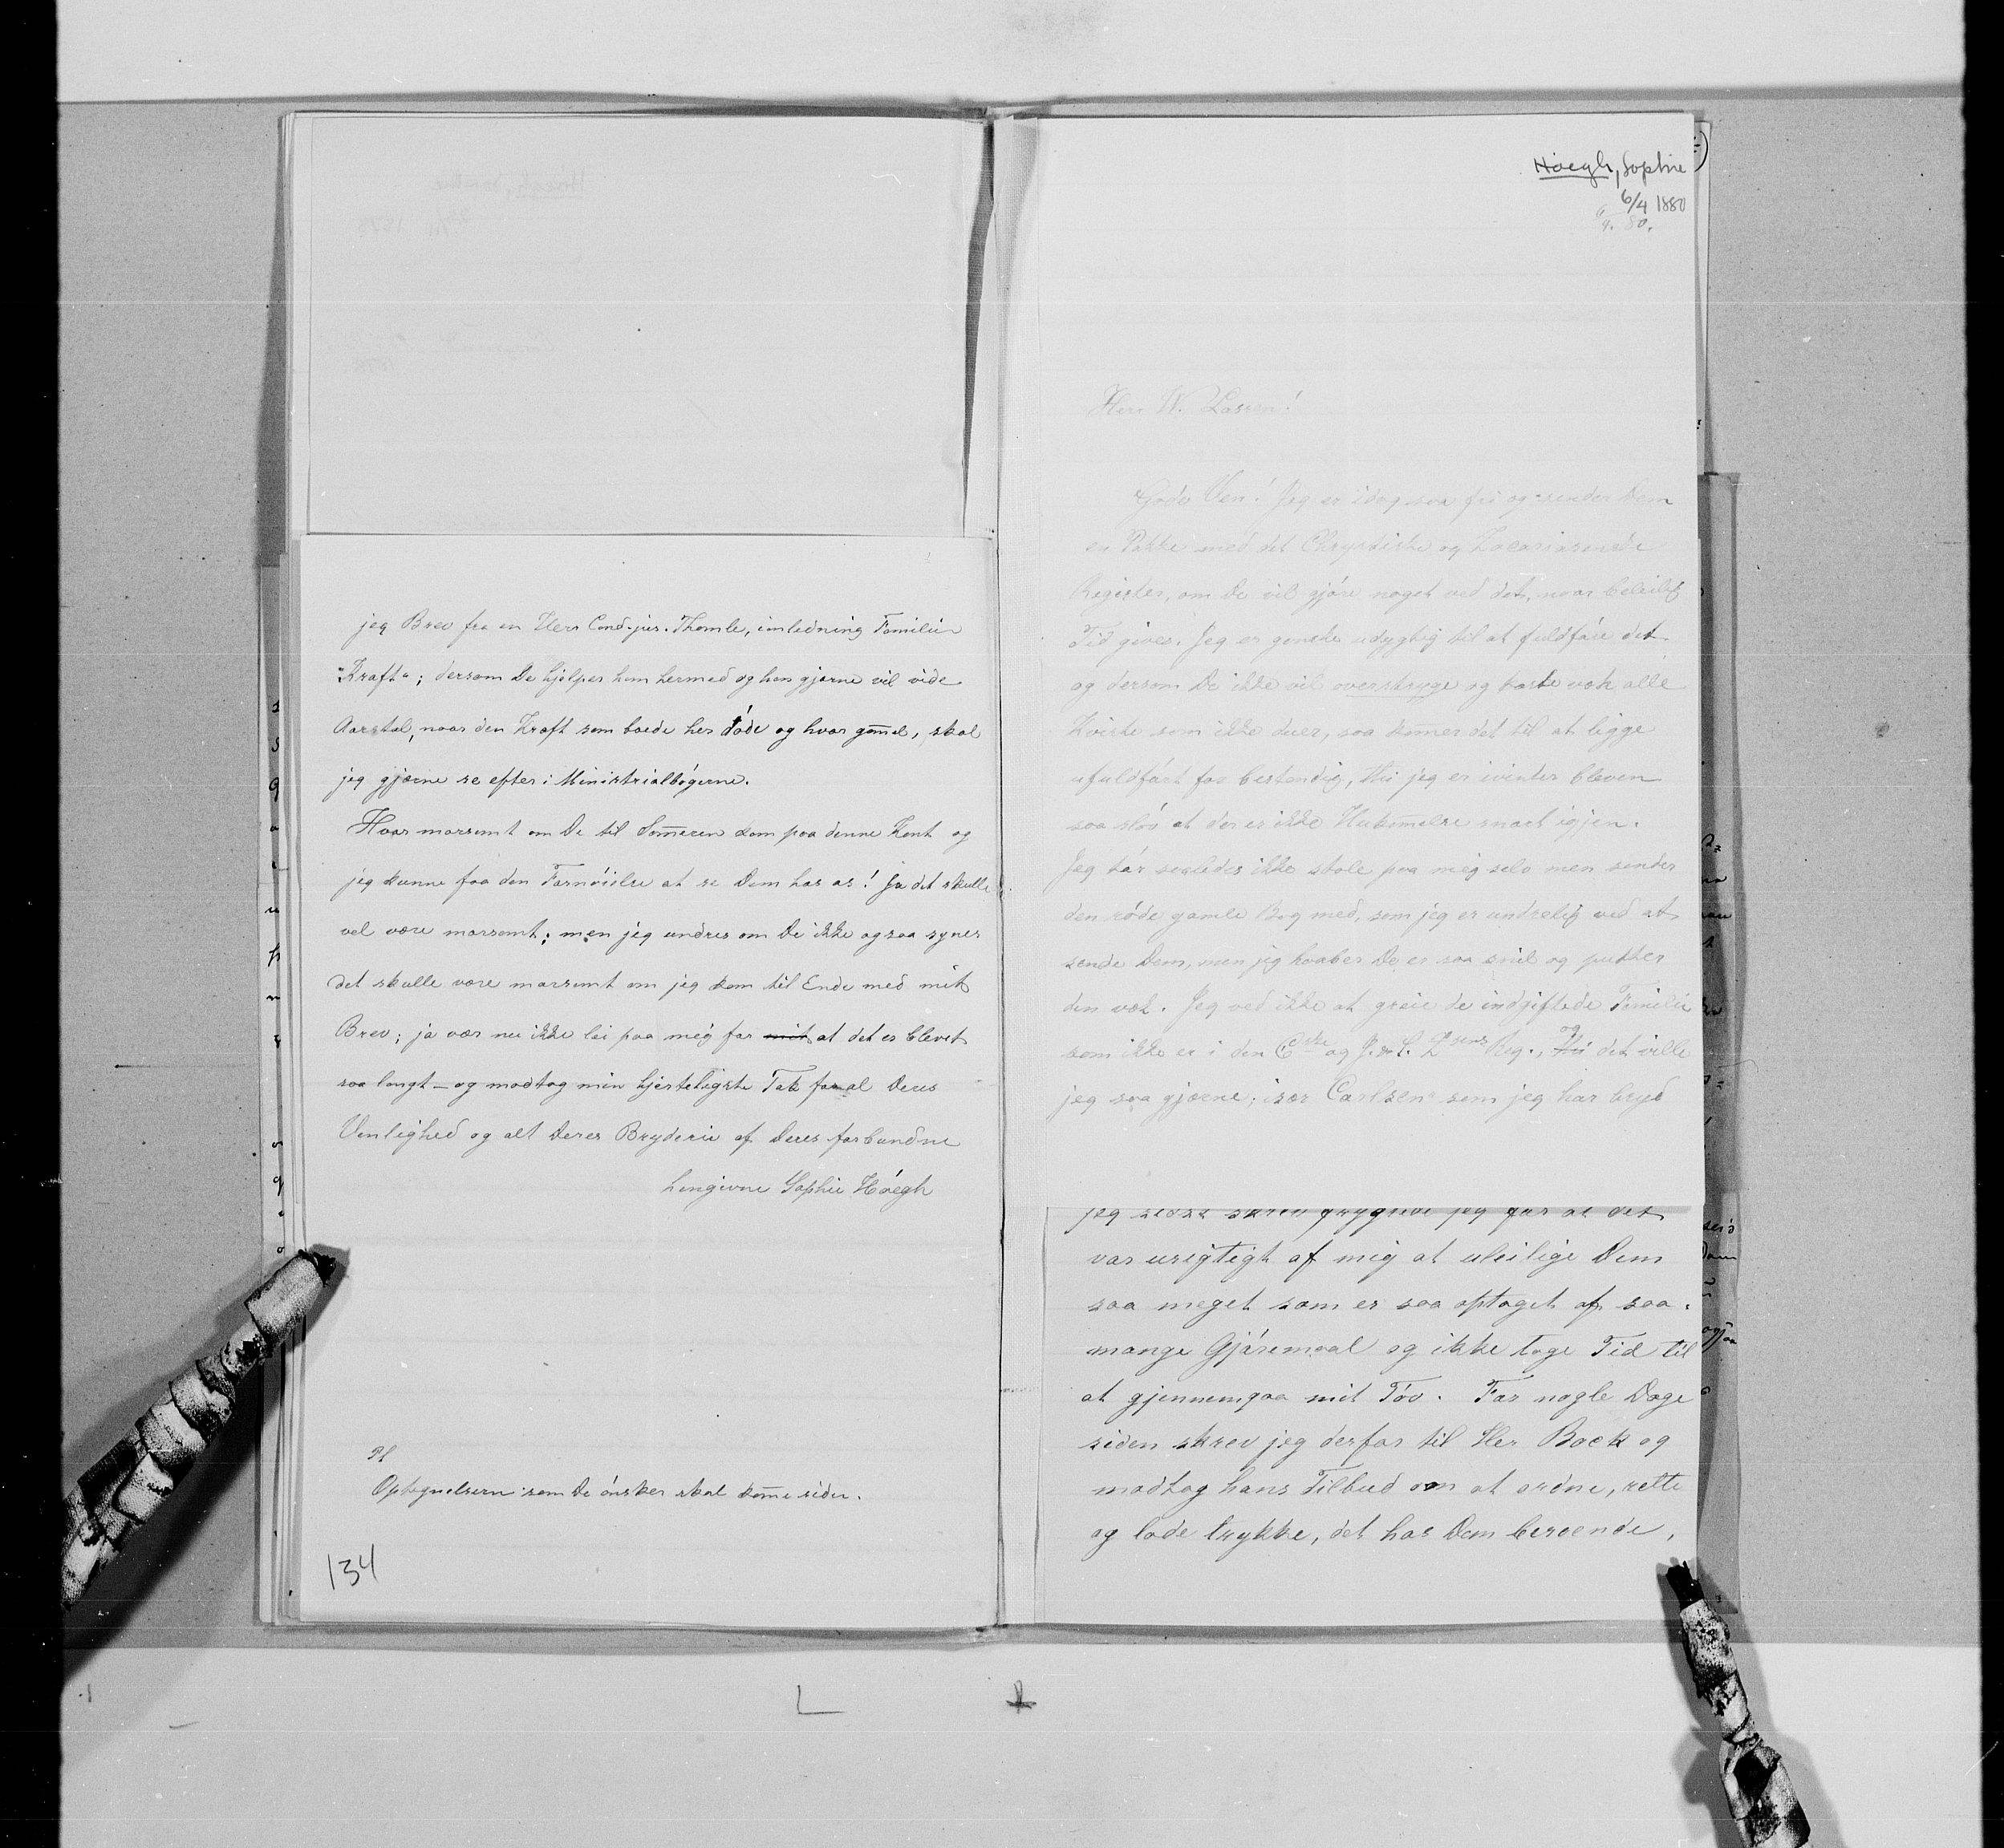 jeg Brev fra en Herr Cand. jur. Thomle, innledning Familie
"Kraft"; dersom De hjelper ham hermed og han gjerne vil vide
Aarstal, naar den Kraft som boede her døde og hvor gam̄el, skal
jeg gjerne se efter i Ministrialbøgerne.
Hvor morsomt om De til Som̄eren kom paa denne Kant og
jeg kunne faa den Fornøielse at se Dem hos os! Ja det skulle
vel være morsomt; men jeg undres om De ikke ogsaa synes
det skulle være morsomt om jeg kom til Ende med mit
Brev; ja vær nu ikke lei paa meg for mit at det er blevet
saa langt – og modtag min hjerteligste Tak for al Deres
Venlighed og alt Deres Bryderie af Deres forbundne
hengivne Sophie Høegh
PS
Optegnelserne som De ønsker skal kom̄e siden.
134
Høegh, Sophie
6/4 1880
6/4. 80.
Herr W. Lassen!
Gode Ven! Jeg er idag saa fri og sender Dem
en Pakke med det Chrystiske og
Register, om De vil gjøre noget ved det, naar beleilig
Tid gives. Jeg er ganske udygtig til at fuldføre det
og dersom De ikke vil overstryge og kaste væk alle
Kviste som ikke duer, saa kom̄er det til at ligge
ufuldført for bestandig, thi jeg er ivinter bleven
saa sløv at der er ikke Hukom̄melse snart igjen.
Jeg tør saaledes ikke stole paa mig selv men sender
den røde gamle Bog med, som jeg er undselig ved at
sende Dem, men jeg haaber De er saa snil og putter
den væk. Jeg ved ikke at greie de indgiftede Familier
som ikke er i den og Reg., Thi og det ville
jeg saa gjerne; især Carlsen som jeg har bryd
jeg sidst skrev frygtede jeg for at det
var urigtigt af mig at uleilige Dem
saa meget som er saa optaget af saa
mange Gjøremaal og ikke tage Tid til
at gjennemgaa mit Tøv. For nogle Dage
siden skrev jeg derfor til Her Boek og
modtog hans Tilbud om at ordne, rette
og lade trykke, det hos Dem beroende,